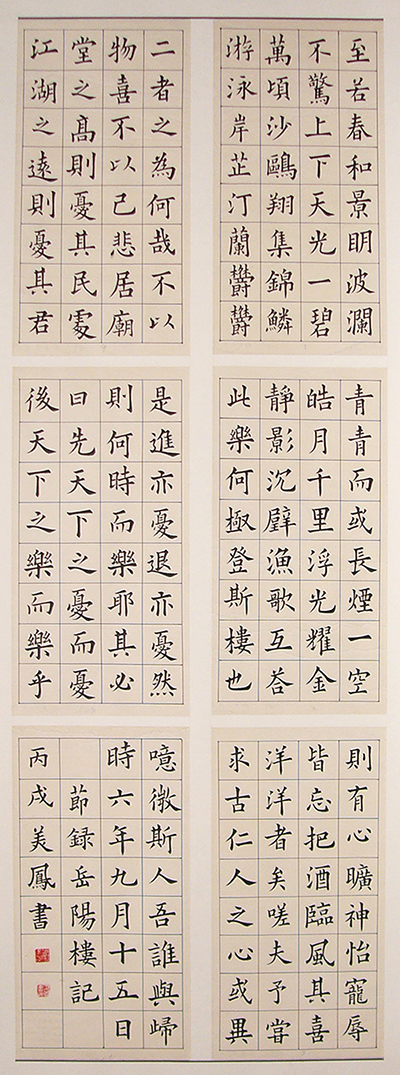 至若春和景眀波瀾
不驚上下天光一碧
萬頃沙鷗翔集錦鱗
游泳岸芷汀蘭欝欝
青青而或長煙一空
皓月千里浮光耀金
靜影沉璧漁歌互荅
此樂何極登斯樓也
則有心曠神怡寵辱
皆忘把酒臨風其喜
洋洋者矣嗟夫予嘗
求古仁人之心或異
二者之為何哉不以
物喜不以己悲居廟
堂之髙則憂其民處
江湖之遠則憂其君
是進亦憂退亦憂然
則何時而樂耶其必
曰先天下之憂而憂
後天下之樂而樂乎
噫微斯人吾誰與歸
時六年九月十五日
節録岳陽樓記
丙戌美鳳書